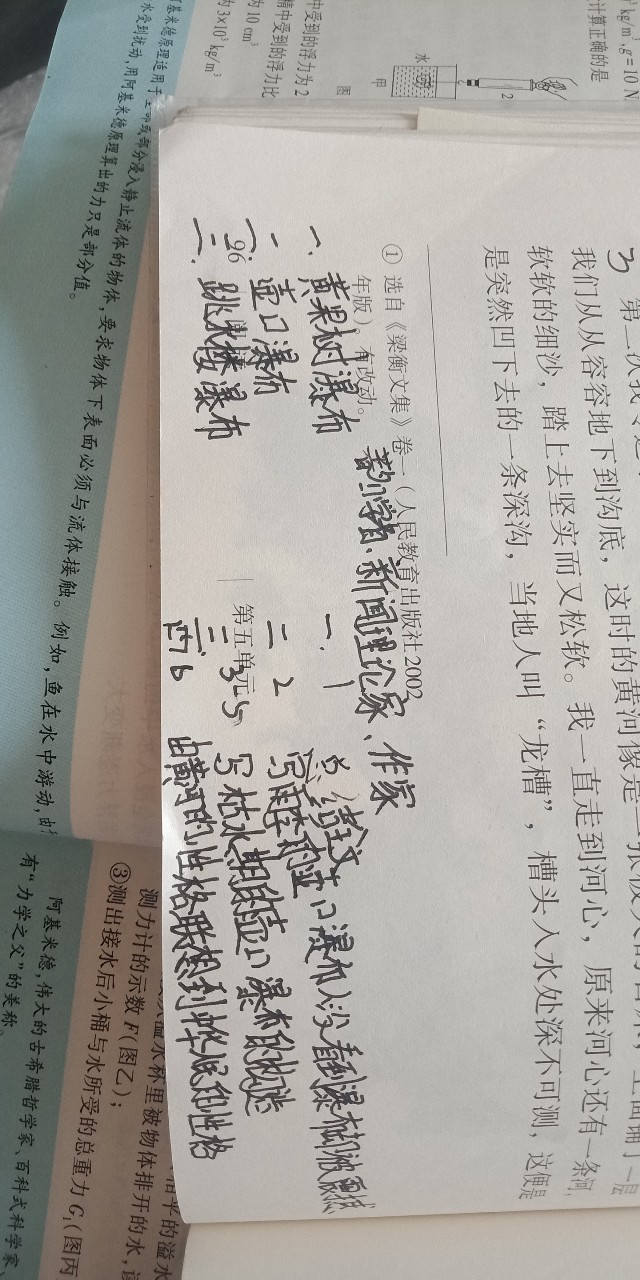 3 第二次我
我们从从容容地下到沟底，这时的黄河像是一张极大的
软软的细沙，踏上去坚实而又松软。我一直走到河心，原来河心还有一条河，
是突然凹下去的一条深沟，当地人叫“龙槽”，槽头入水处深不可测，这便是
① 选自《梁衡文集》卷一（人民教育出版社2002
年版）。有改动。
新闻理论家、作家
一、黄果树瀑布
二、壶口瀑布
三、瀑布
96
第五单元
一、1
二 2
写雨季的壶口瀑布
三 3-5
写枯水期的壶口瀑布的
四 6
由黄河的性格联想到中华民族的性格
kg/m³,g=10 N
计算正确的是
水
甲
图
2
中受到的浮力为2
精中受到的浮力比
为10 cm³
为3×10³ kg/m³
阿基米德原理适用于全部或部分浸入静止流体的物体，要求物体下表面必须与流体接触。例如，鱼在水中游动，由
水受到扰动，用阿基米德原理算出的力只是部分值。
溢水杯里被物体排开的水，
测力计的示数 F(图乙)；
③测出接水后小桶与水所受的总重力 G₁(图丙
阿基米德，伟大的古希腊哲学家、百科式科学家、
有“力学之父”的美称。